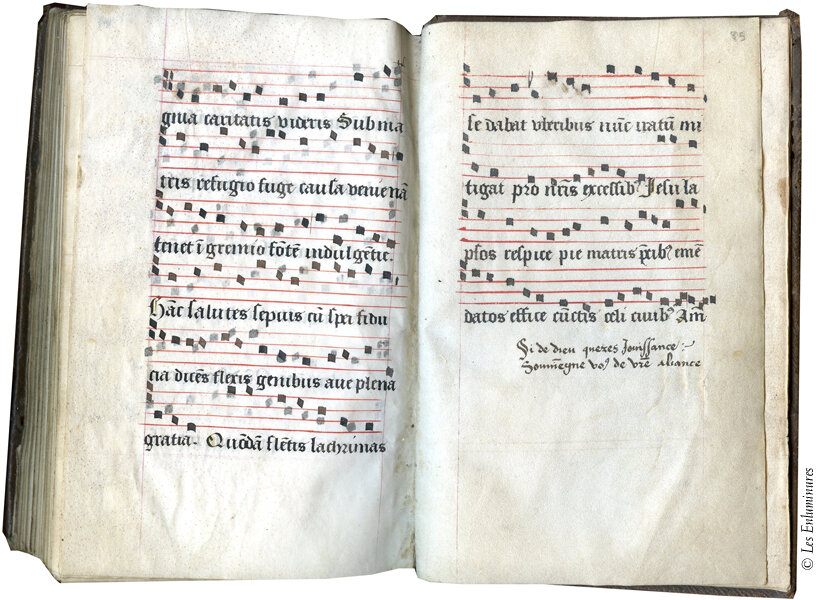 gnia caritatis videris Sub ma
tris refugio fuge causa venie nā
tenet ī gremio fōtem indulgētie.
Hāc salutes sepius cū spei fidu
cia dicēs flexis genibus ave plena
gratia. Quōdā flētis lachrimas
85
se dabat vberibus nūc iratum mi
tigat pro nr̄is excessib⁹ Jesu la
psos respice pie matris p̄cib⁹ emē
datos effice cūctis celi civib⁹ Am
Si de dieu queres Jouissance:
Souviegne vo⁹ de vr̄e aliance
© Les Enluminures